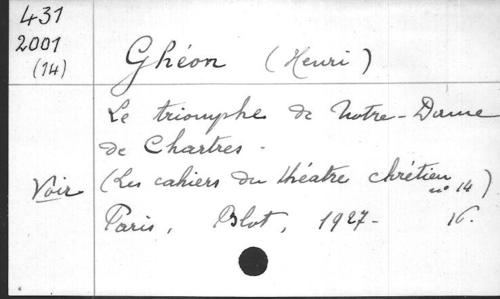 431
2001
(14)
Ghéon (Henri)
Le triomphe de Notre-Dame
de Chartres -
(Les cahiers du théatre chrétien n° 14)
Voir
Paris, Blot, 1927- 16.